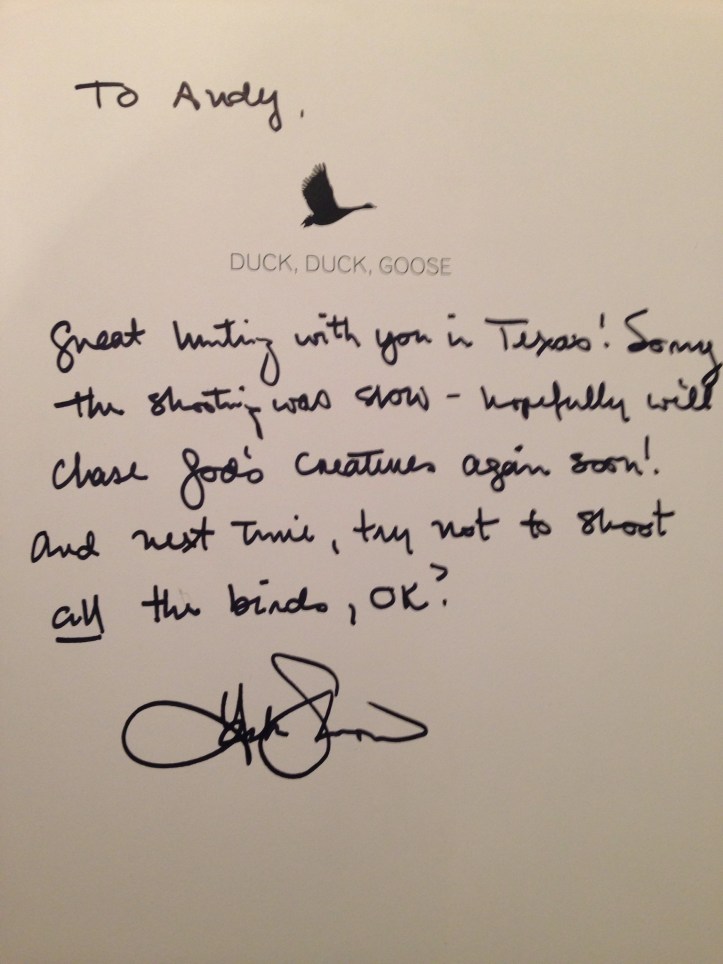 To Andy,
DUCK, DUCK, GOOSE
Great hunting with you in Texas! Sorry
the shooting was slow - hopefully will
chase God's creatures again soon!
And next time, try not to shoot
all the birds, OK?
Hank